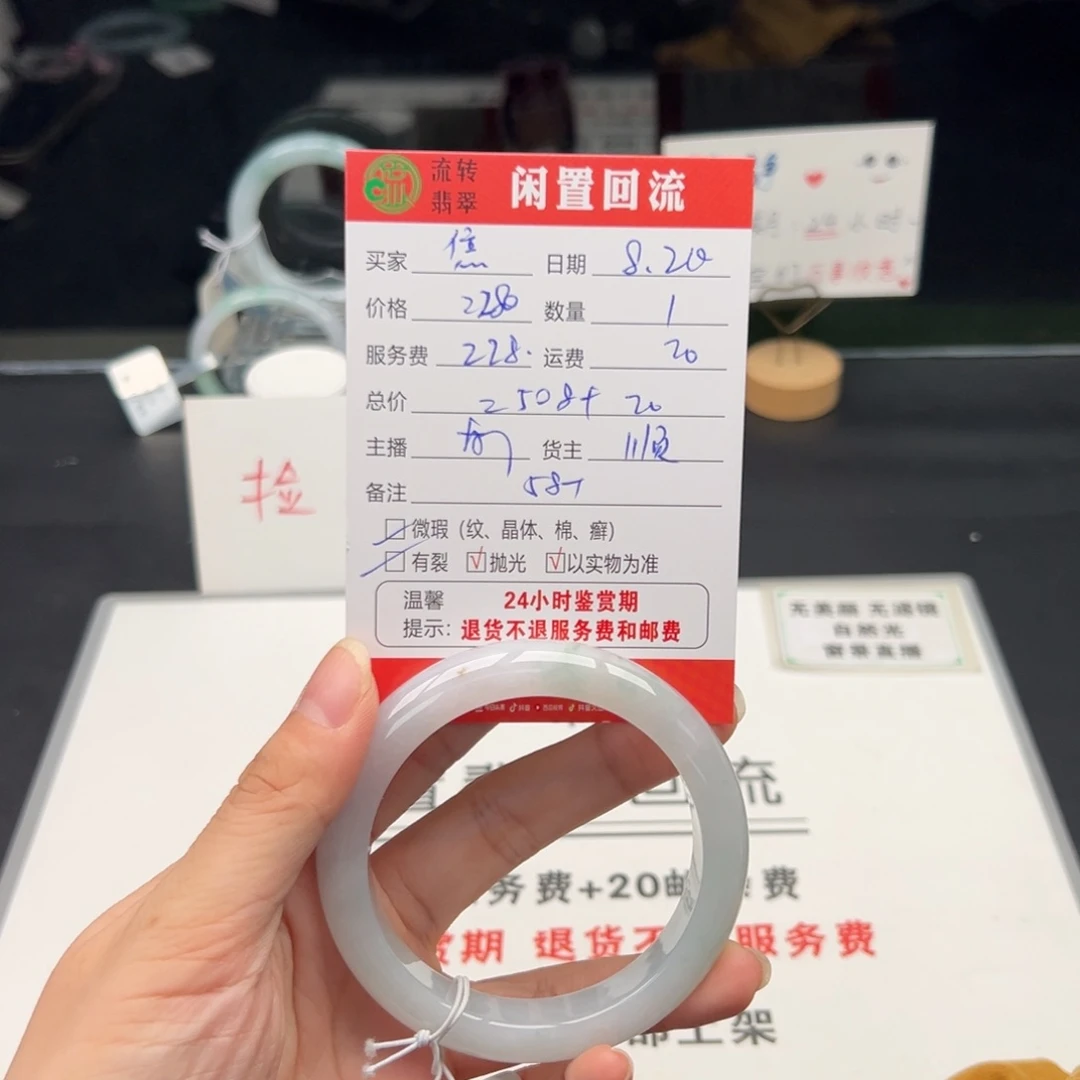 流转
翡翠
闲置回流
买家 焦 日期 8.20
价格 2280 数量 1
服务费 228. 运费 20
总价 2508+20
主播 货主 川顺
备注 58+
微瑕（纹、晶体、棉、癣）
有裂 √抛光 √以实物为准
温馨 24小时鉴赏期
提示：退货不退服务费和邮费
捡
无美颜 无滤镜
自然光
窗景直播
回流
务费+20邮 费
赏期 退货不 服务费
部上架